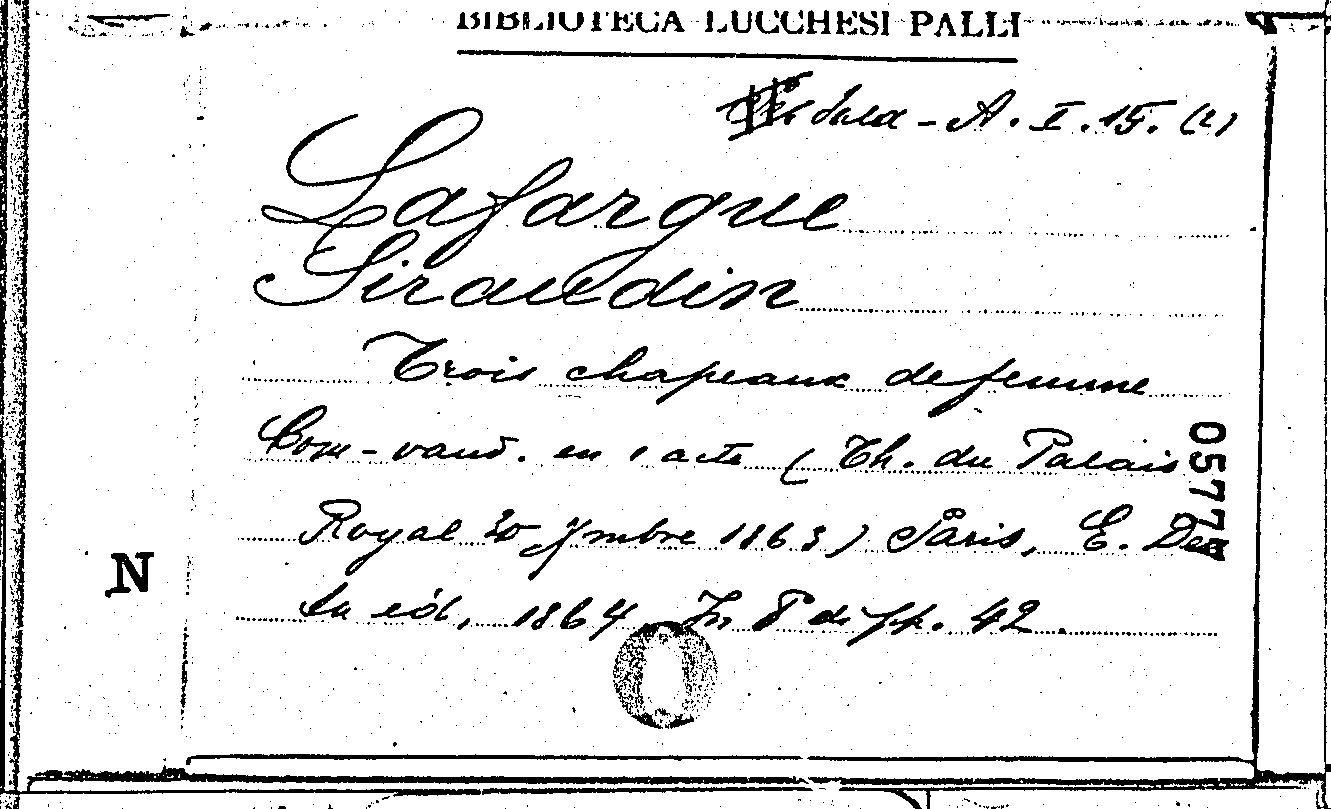 BIBLIOTECA LUCCHESI PALLI
Sala - A. I. 15. (1)
Lafargue
Siraudin
Trois chapeaux de femme
Com-vaud. en 1 acte (Th. du Palais
Royal 20 9mbre 1863) Paris, E. Den
tu éd., 1864 In 8° di pp. 42.
0577
N